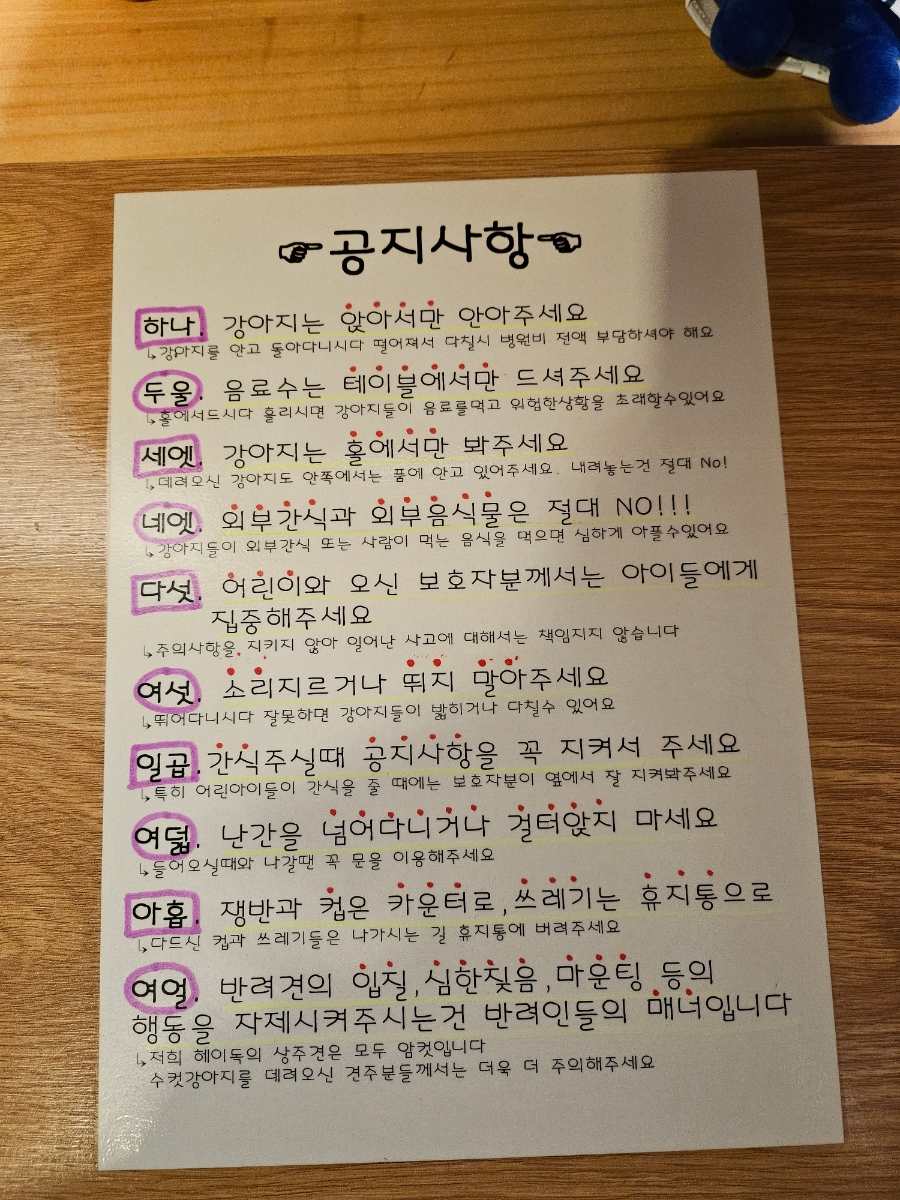 ☞공지사항☜
하나. 강아지는 앉아서만 안아주세요
↳강아지를 안고 돌아다니시다 떨어져서 다칠시 병원비 전액 부담하셔야 해요
두울. 음료수는 테이블에서만 드셔주세요
↳홀에서드시다 흘리시면 강아지들이 음료를먹고 위험한상황을 초래할수있어요
세엣. 강아지는 홀에서만 봐주세요
↳데려오신 강아지도 안쪽에서는 품에 안고 있어주세요. 내려놓는건 절대 No!
네엣. 외부간식과 외부음식물은 절대 NO!!!
↳강아지들이 외부간식 또는 사람이 먹는 음식을 먹으면 심하게 아플수있어요
다섯. 어린이와 오신 보호자분께서는 아이들에게
집중해주세요
↳주의사항을 지키지 않아 일어난 사고에 대해서는 책임지지 않습니다
여섯. 소리지르거나 뛰지 말아주세요
↳뛰어다니시다 잘못하면 강아지들이 밟히거나 다칠수 있어요
일곱. 간식주실때 공지사항을 꼭 지켜서 주세요
↳특히 어린아이들이 간식을 줄 때에는 보호자분이 옆에서 잘 지켜봐주세요
여덟. 난간을 넘어다니거나 걸터앉지 마세요
↳들어오실때와 나갈땐 꼭 문을 이용해주세요
아홉. 쟁반과 컵은 카운터로, 쓰레기는 휴지통으로
↳다드신 컵과 쓰레기들은 나가시는 길 휴지통에 버려주세요
여얼. 반려견의 입질, 심한짖음, 마운팅 등의
행동을 자제시켜주시는건 반려인들의 매너입니다
↳저희 헤이독의 상주견은 모두 암컷입니다
수컷강아지를 데려오신 견주분들께서는 더욱 더 주의해주세요